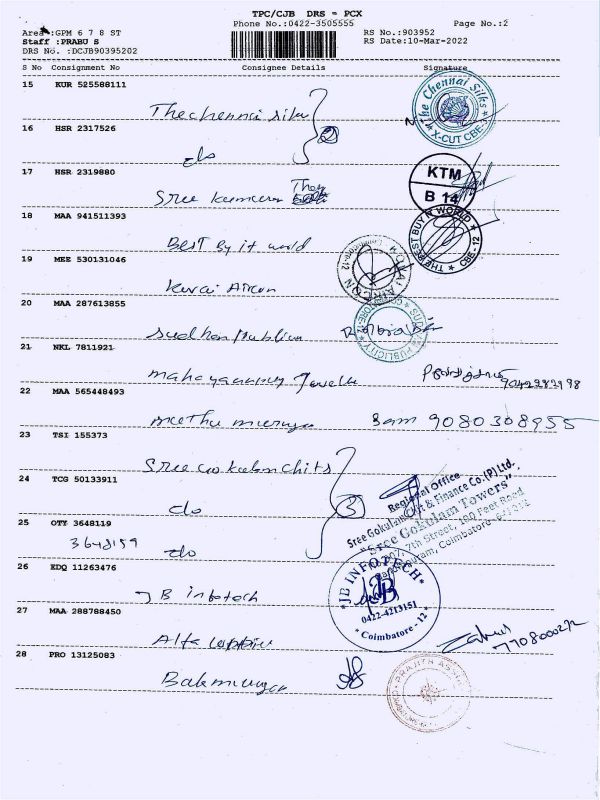 TPC/CJB DRS = PCX
Phone No.:0422-3505555 Page No.:2
Area :GPM 6 7 8 ST RS No.:903952
Staff :PRABU S RS Date:10-Mar-2022
DRS No. :DCJB90395202
S No Consignment No Consignee Details Signature
15 KUR 525588111
The chennai silks
The Chennai Silks
X-CUT CBE-
16 HSR 2317526
do
17 HSR 2319880
Sree kumaran
KTM
B 14
18 MAA 941511393
Best By it world
THE BEST BUY IT WORLD
CBE-12
19 MEE 530131046
Kovai Aircon
KOVAI AIRCON
20 MAA 287613855
Sudhan
PUBLICITY
21 NKL 7811921
Jewelle
9042282998
22 MAA 565448493
muthu muruga Bam 9080308955
23 TSI 155373
Sree Gokulam chits
24 TCG 50133911
do 3
Regional Office
Sree Gokulam Chit & Finance Co.(P)Ltd.,
"Sree Gokulam Towers"
7th Street, 100 Feet Road
Coimbatore-641012
25 OTY 3648119
3648119
do
26 EDQ 11263476
JB infotech
JB INFOTECH
JB
0422-4213151
Coimbatore - 12
27 MAA 288788450
Alfa
28 PRO 13125083
Balmurugan